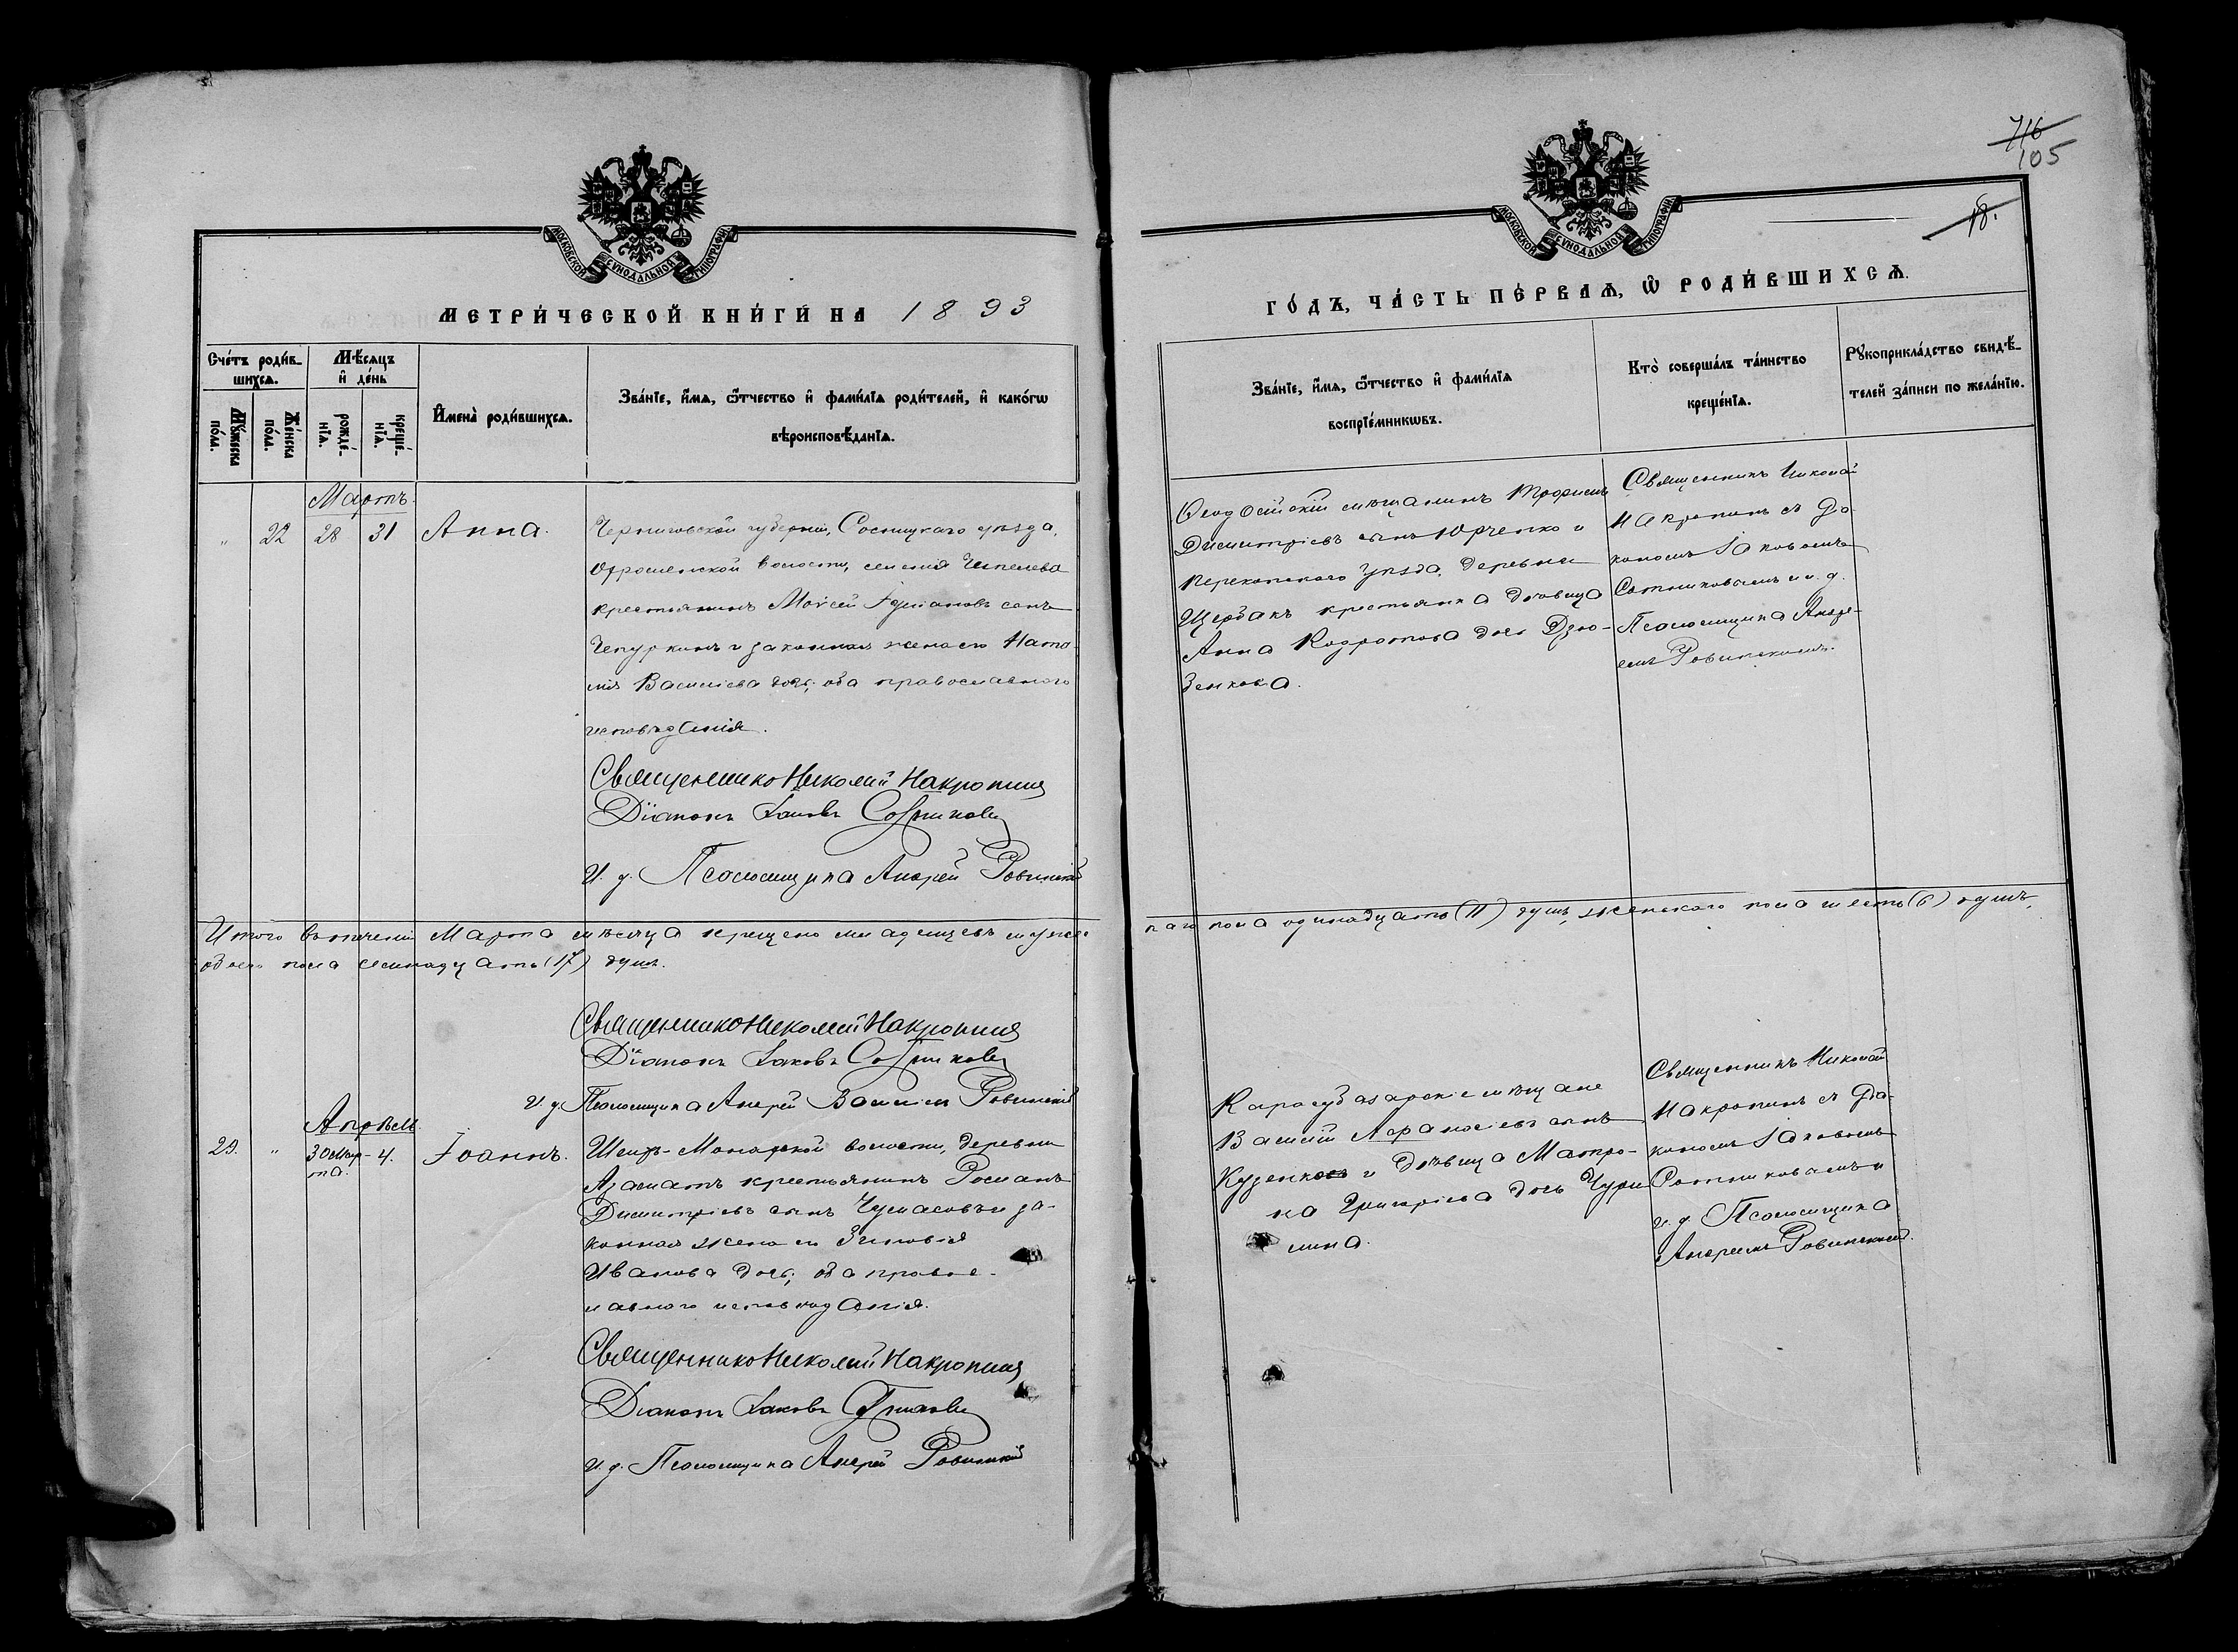 716
105
18.
МОСКОВСКОЙ СѴНОДАЛЬНОЙ ТИПОГРАФІИ
МОСКОВСКОЙ СѴНОДАЛЬНОЙ ТИПОГРАФІИ
МЕТРИ́ЧЕСКОЙ КНИ́ГИ НА 1893
ГО́ДЪ, ЧА́СТЬ ПЕ́РВАѦ, Ѿ РОДИ́ВШИХСѦ.
Сче́тъ роди́в-
шихсѧ.
Мѣ́сяцъ
и҆ де́нь
Мꙋ́жеска
по́ла.
Же́нска
по́ла.
рожде́-
нїѧ.
креще́-
нїѧ.
И҆мена̀ роди́вшихсѧ.
Зва́нїе, и҆́мѧ, ѻ҆́тчество и҆ фами́лїѧ роди́телей, и҆ како́гѡ
вѣроисповѣ́данїѧ.
Зва́нїе, и҆́мѧ, ѻ҆́тчество и҆ фами́лїѧ
воспрїе́мникѡвъ.
Кто̀ соверша́лъ та́инство
креще́нїѧ.
Рꙋкоприкла́дство свидѣ́-
телей за́писи по жела́нїю.
Мартъ.
" 22 28 31 Анна.
Черниговской губерніи, Сосницкаго уѣзда,
волости, селенія
крестьянинъ Моѵсей сынъ
Чепуркинъ и законная жена его Ната-
лія Василіева дочь; оба православнаго
исповѣданія.
Священникъ Николай Накропинъ
Діаконъ Іаковъ Сотниковъ
И. д. Псаломщика Андрей Ровинскій
Ѳеодосійскій мѣщанинъ Трофимъ
Димитріевъ сынъ Юрченко и
Перекопскаго уѣзда, деревни
Щербакъ крестьянка дѣвица
Анна Кодратова дочь Дзю-
Зенкова.
Священникъ Николай
Накропинъ съ Діа-
кономъ Іаковомъ
Сотниковымъ и и. д.
Псаломщика Андре-
емъ Ровинскимъ.
Итого въ теченіи Марта мѣсяца крещено младенцевъ мужес-
каго пола одинадцать (11) душъ, женскаго пола шесть (6) душъ,
обоего пола семнадцать (17) душъ.
Священникъ Николай Накропинъ
Діаконъ Іаковъ Сотниковъ
И. д. Псаломщика Андрей Ровинскій
Апрѣль.
23. " 30 Мар-
та. 4. Іоаннъ.
Шейх-Монахской волости, деревни
Азаматъ крестьянинъ Романъ
Димитріевъ сынъ Чумасовъ и за-
конная жена его Зиновія
Иванова дочь; оба правос-
лавнаго исповѣданія.
Священникъ Николай Накропинъ
Діаконъ Іаковъ Сотниковъ
И. д. Псаломщика Андрей Ровинскій
Карасубазарскіе мѣщане
Василій Аѳанасіевъ сынъ
и дѣвица Матро-
на Григоріева дочь Чури-
лина.
Священникъ Николай
Накропинъ съ Діа-
кономъ Іаковомъ
Сотниковымъ и
и. д. Псаломщика
Андреемъ Ровинскимъ.